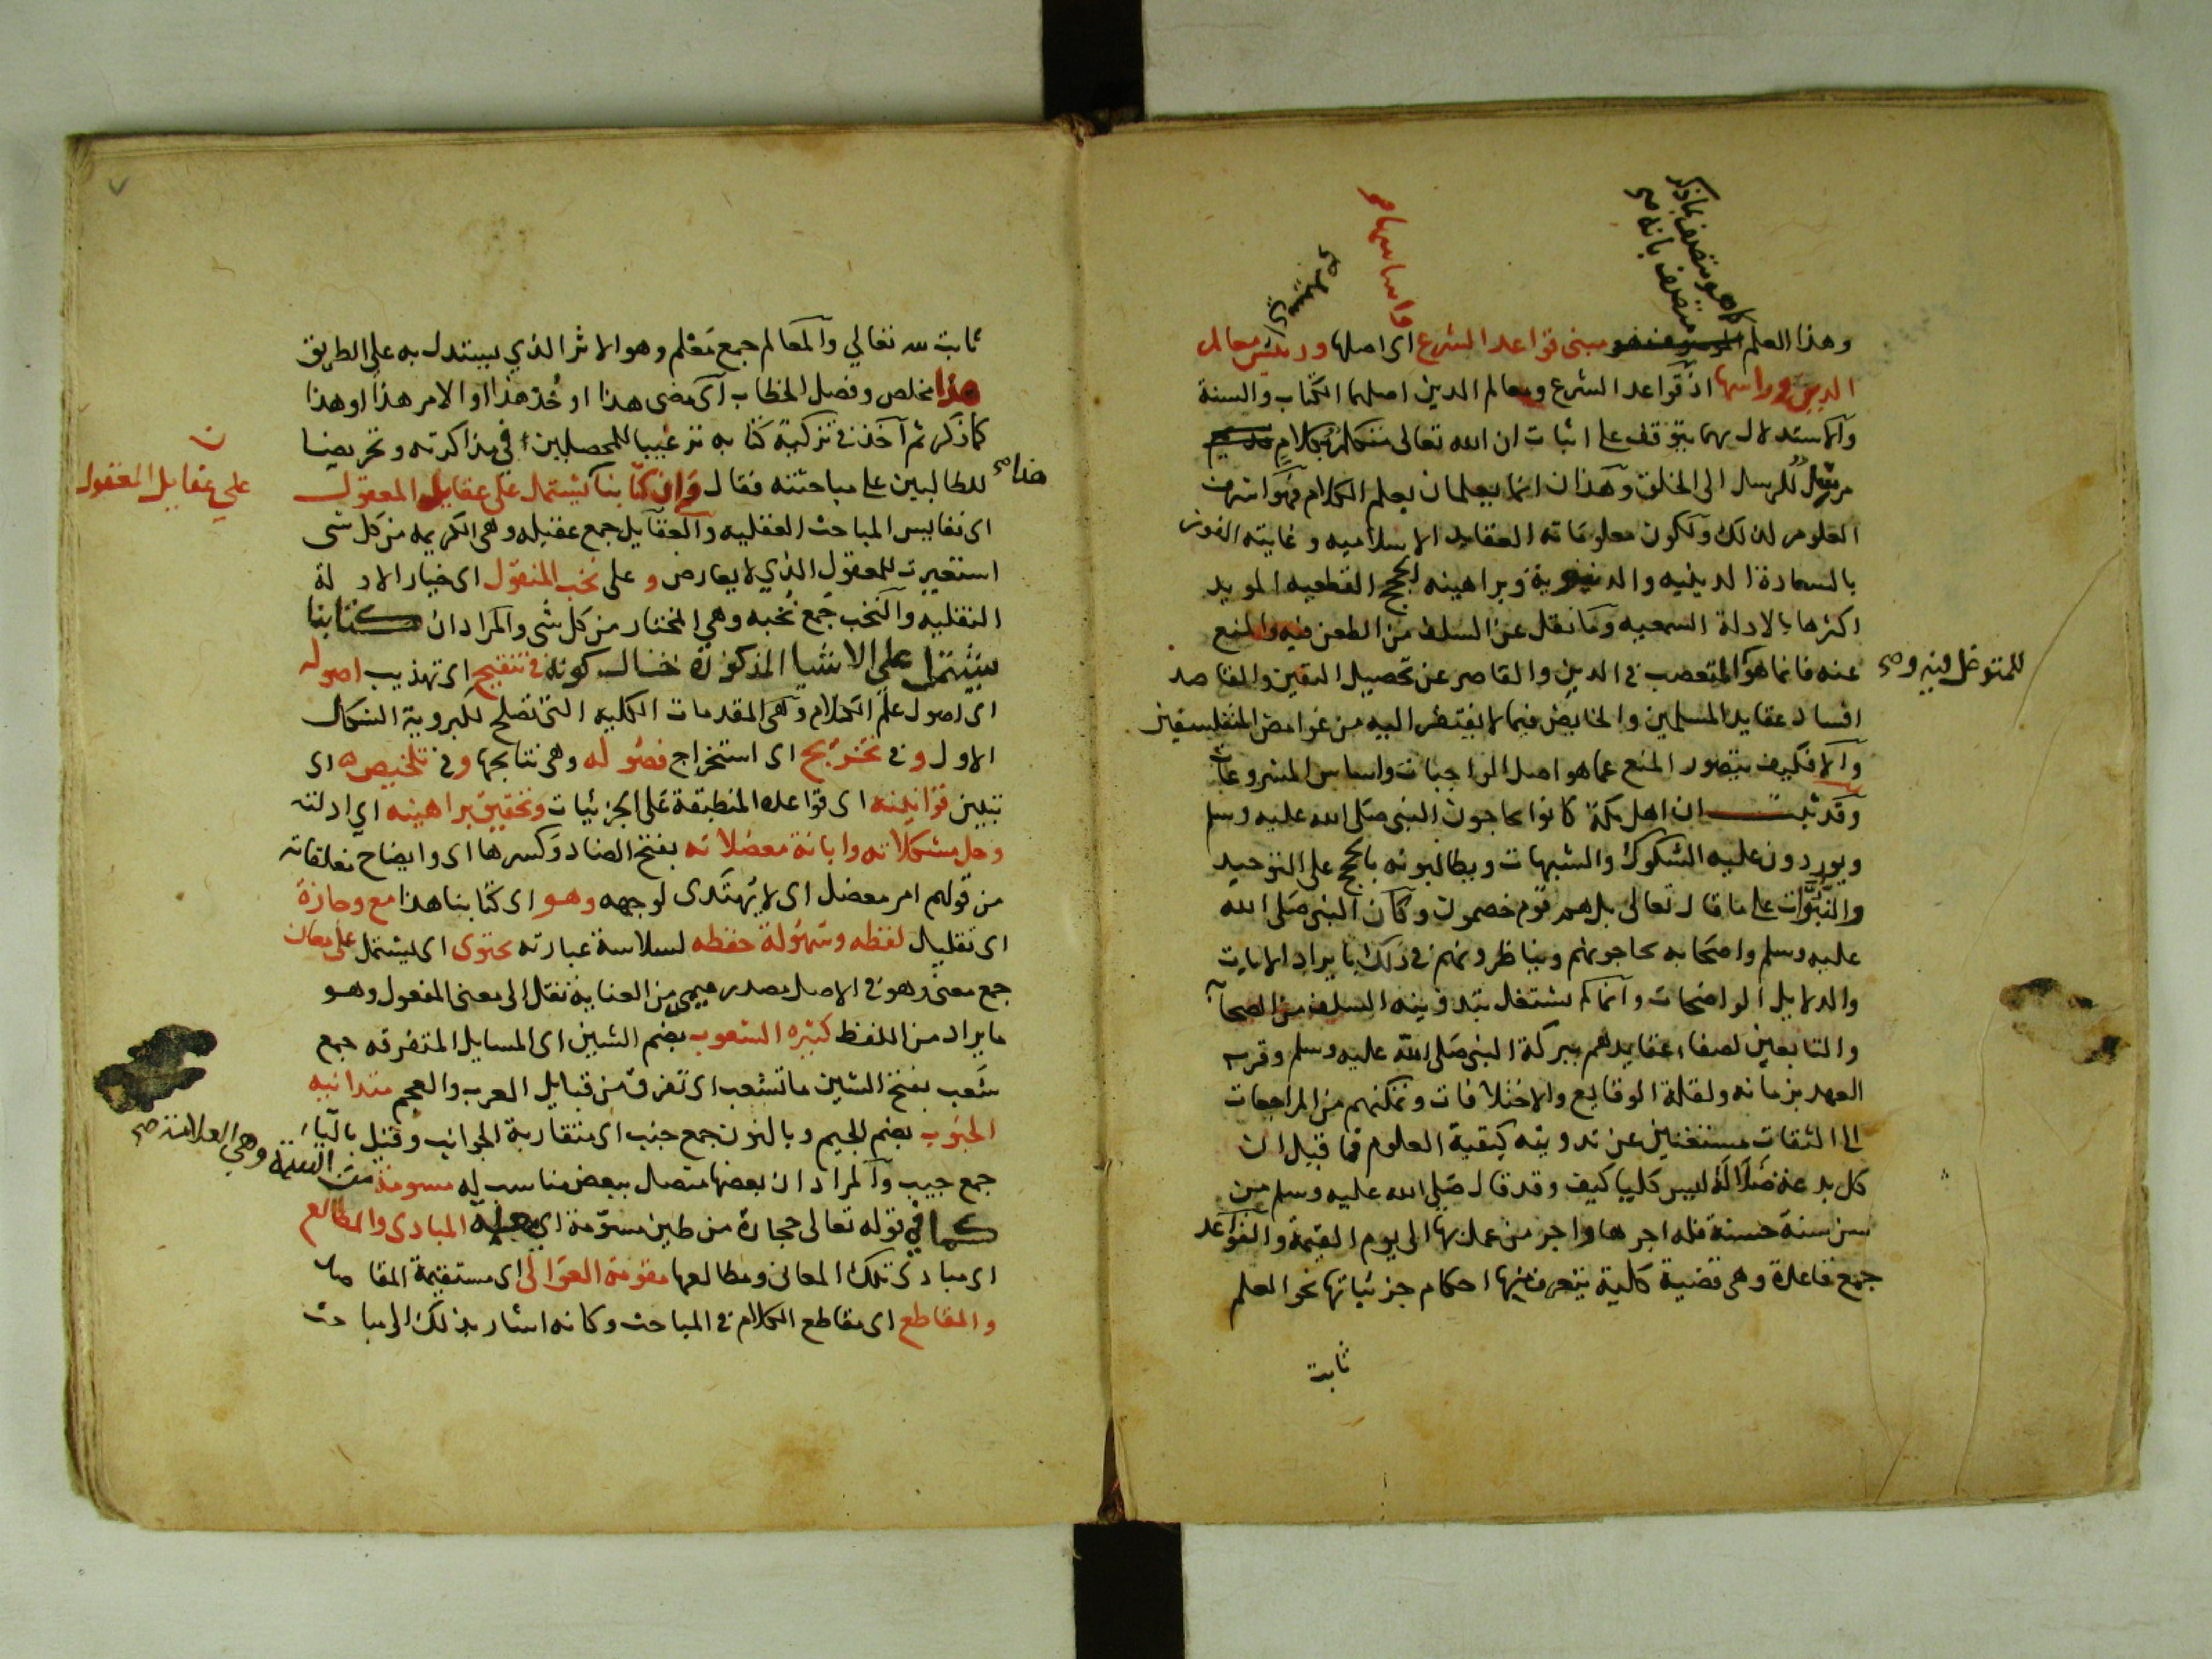 كما هو متصف بما ذكر
متصف بانه صح
واساسها صح
اي سيد صح
وهذا العلم مبنى قواعد الشرع اى اصلها ورئيس معالم
الدين وراسها اذ قواعد الشرع ومعالم الدين اصلهما الكتاب والسنة
والاستدلال بهما يتوقف على اثبات ان الله تعالى متكلم بكلام
مرسل للرسل الى الخلق وهذان انما يعلمان بعلم الكلام فهو اشرف
العلوم لذلك ولكون معلوماته العقايد الاسلاميه وغايته الفوز
بالسعادة الدينيه والدنيوية وبراهينه الحجج القطعيه المويد
اكثرها بالادلة السمعيه وما نقل عن السلف من الطعن فيه والمنع
عنه فانما هو للمتعصب فى الدين والقاصر عن تحصيل اليقين والقاصد
للمتوغل فيه وصح
افساد عقايد المسلمين والخايض فيما لا يفتقر اليه من غوامض المتفلسفين
والا فكيف يتصور المنع عما هو اصل الواجبات واساس المشروعات
وقد ثبت ان اهل مكة كانوا يحاجون النبى صلى الله عليه وسلم
ويوردون عليه الشكوك والشبهات ويطالبونه بالحجج على التوحيد
والنبوات على ما قال تعالى بل هم قوم خصمون وكان النبى صلى الله
عليه وسلم واصحابه يحاجونهم ويناظرونهم فى ذلك بايراد الايات
والدلايل الواضحات وانما لم يشتغل بتدوينه السلف من الصحابة
والتابعين لصفاء عقايدهم ببركة النبى صلى الله عليه وسلم وقرب
العهد بزمانه ولقلة الوقايع والاختلافات وتمكنهم من المراجعات
الى الثقات مستغنين عن تدوينه كبقية العلوم فما قيل ان
كل بدعة ضلالة ليس كليا كيف وقد قال صلى الله عليه وسلم من
سن سنة حسنة فله اجرها واجر من عمل بها الى يوم القيمة والقواعد
جمع قاعدة وهى قضية كلية يتعرف منها احكام جزئياتها نحو العلم
ثابت
ثابت لله تعالي والمعالم جمع معلم وهو الاثر الذي يستدل به على الطريق
هذا مخلص وفصل الخطاب اى مضى هذا او خذ هذا او الامر هذا او هذا
كما ذكر ثم آخذ فى تزكية كتابه ترغيبا للمحصلين في مذاكرته وتحريضا
هذا صح
للطالبين على مباحثته فقال وان كتابنا يشتمل على عقايل المعقول
ن
علي عقايل المعقول
اى نفايس المباحث العقليه والعقايل جمع عقيله وهى الكريمه من كل شى
استعيرت للمعقول الذي لا يعارض و على نخب المنقول اى خيار الادلة
النقليه والنخب جمع نخبه وهي المختار من كل شى والمراد ان كتابنا
يشتمل على الاشيا المذكورة حال كونه فى تنقيح اى تهذيب اصوله
اى اصول علم الكلام وهى المقدمات الكليه التى تصلح لكبروية الشكل
الاول و فى تخريج اى استخراج فصوله وهى نتايجها و فى تلخيص اى
تبيين قوانينه اى قواعده المنطبقة على الجزئيات وتحقيق براهينه اي ادلته
وحل مشكلاته وابانة معضلاته بفتح الضاد وكسرها اى وايضاح مغلقاته
من قولهم امر معضل اى لا يهتدى لوجهه وهو اى كتابنا هذا مع وجازة
اى تقليل لفظه وسهولة حفظه لسلاسة عبارته محتوى اى يشتمل على معان
جمع معنى وهو فى الاصل مصدر ميمى من العناية نقل الى معنى المفعول وهو
ما يراد من اللفظ كثيره الشعوب بضم الشين اى المسايل المتفرقه جمع
شعب بفتح الشين ما تشعب اى تفرق من قبايل العرب والعجم متدانيه
الجنوب بضم الجيم وبالنون جمع جنب اى متقاربة الجوانب وقيل بالياء
جمع جيب والمراد ان بعضها متصل ببعض مناسب له مسومة
من السيمة وهي العلامة صح
كما في قوله تعالى حجارة من طين مسومة اى معلمة المبادى والمطالع
اى مبادى تلك المعانى ومطالعها مقومة العوالى اى مستقيمة المقاصد
والمقاطع اى مقاطع الكلام فى المباحث وكانه اشار بذلك الى مباحث